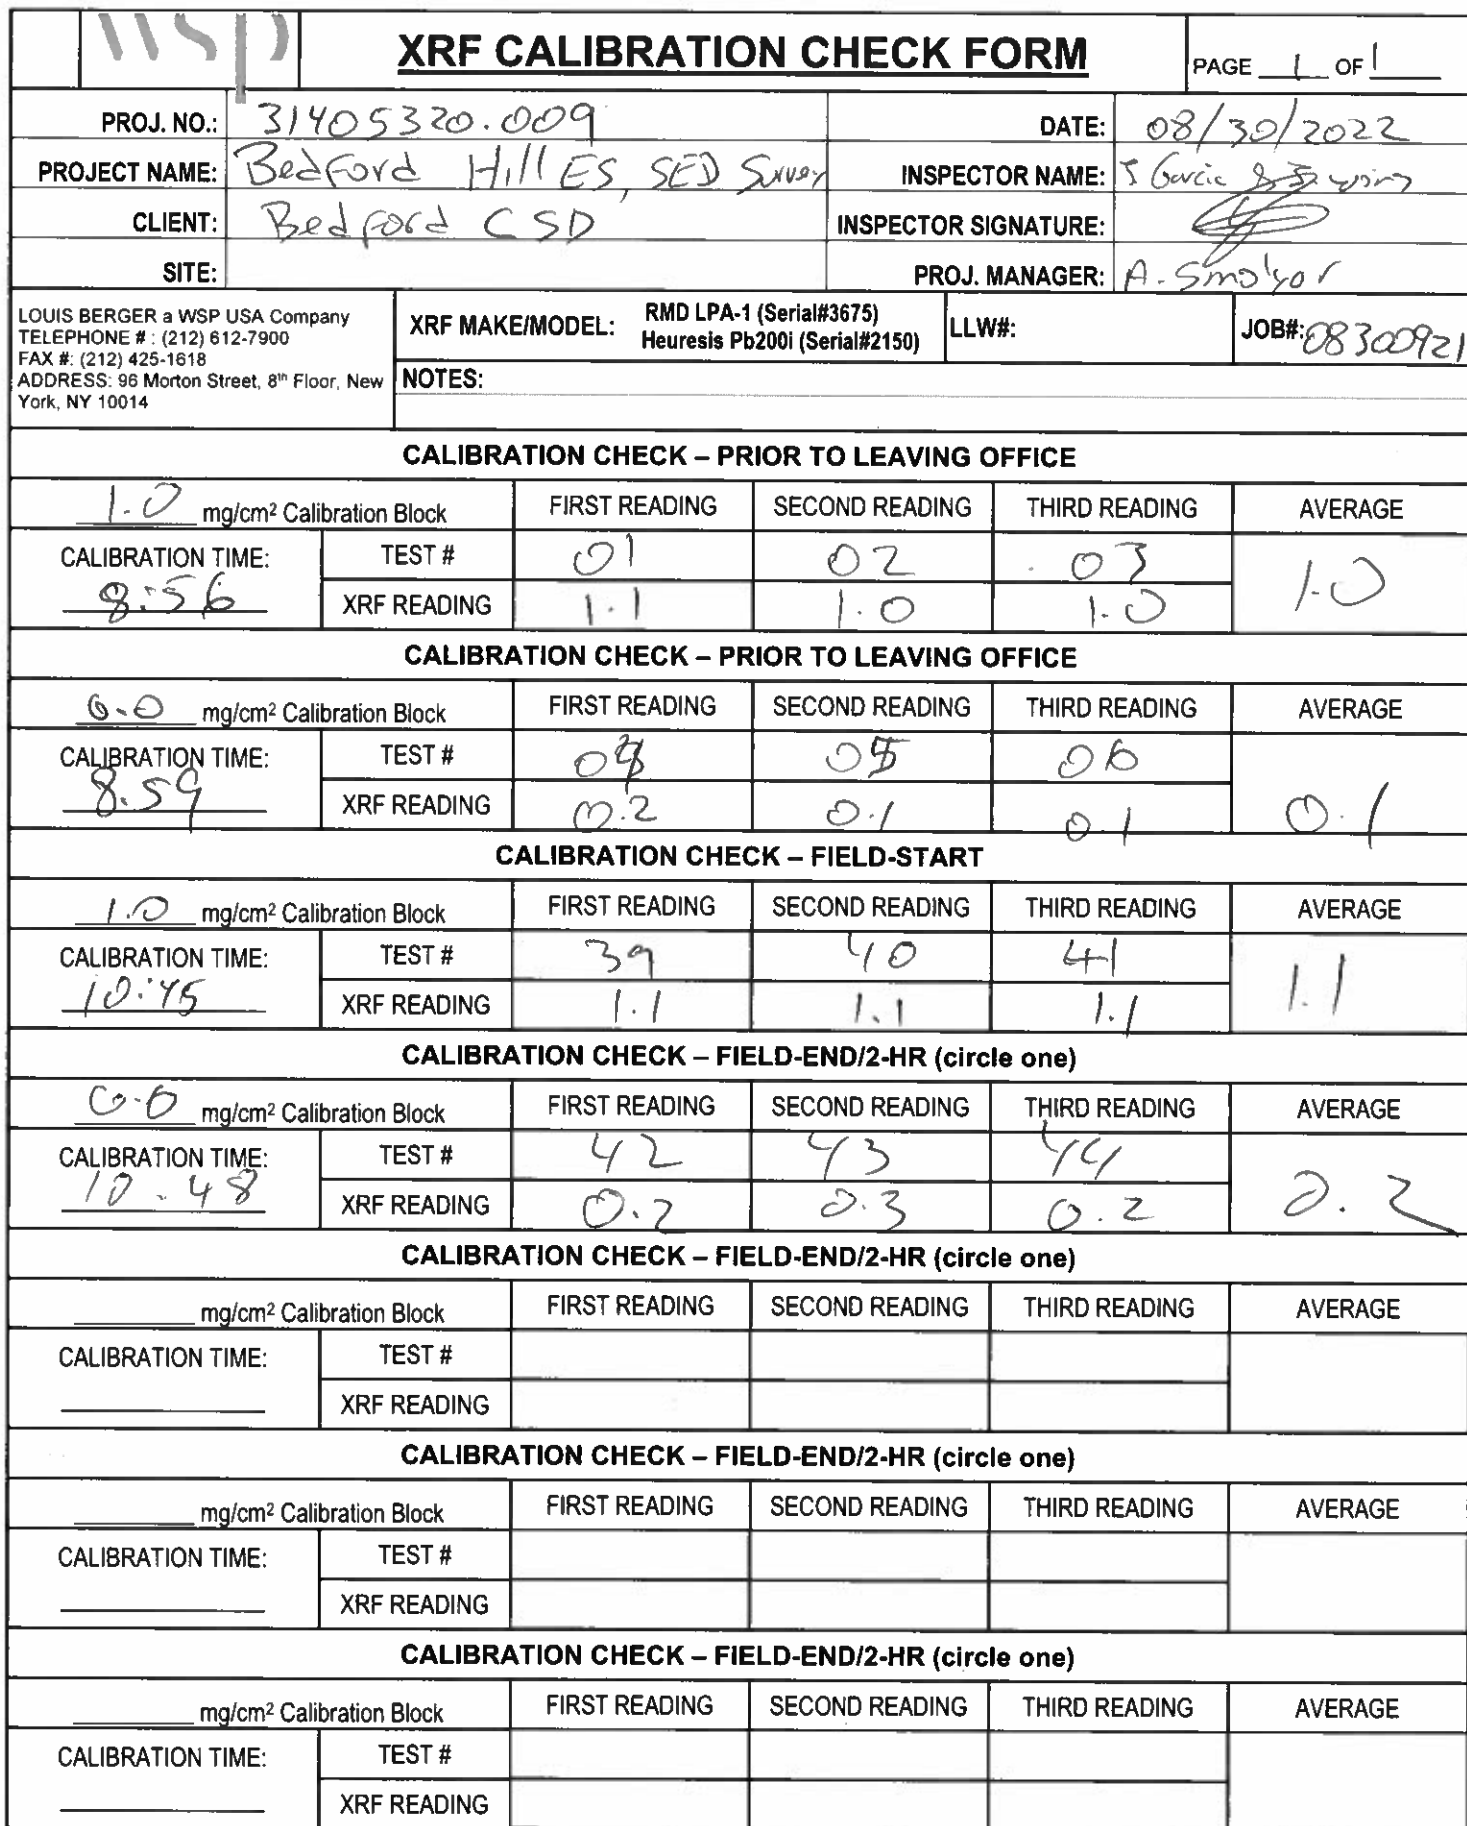 wsp
XRF CALIBRATION CHECK FORM
PAGE 1 OF 1
PROJ. NO.: 31405320.009
DATE: 08/30/2022
PROJECT NAME: Bedford Hill ES, SED Survey
INSPECTOR NAME: J Garcia &
CLIENT: Bedford CSD
INSPECTOR SIGNATURE:
SITE:
PROJ. MANAGER: A. Smolyar
LOUIS BERGER a WSP USA Company
TELEPHONE # : (212) 612-7900
FAX #: (212) 425-1618
ADDRESS: 96 Morton Street, 8th Floor, New
York, NY 10014
XRF MAKE/MODEL: RMD LPA-1 (Serial#3675)
Heuresis Pb200i (Serial#2150)
LLW#:
JOB#: 08300921
NOTES:
CALIBRATION CHECK – PRIOR TO LEAVING OFFICE
1.0 mg/cm² Calibration Block FIRST READING SECOND READING THIRD READING AVERAGE
CALIBRATION TIME: TEST # 01 02 03 1.0
8:56 XRF READING 1.1 1.0 1.0
CALIBRATION CHECK – PRIOR TO LEAVING OFFICE
0.0 mg/cm² Calibration Block FIRST READING SECOND READING THIRD READING AVERAGE
CALIBRATION TIME: TEST # 04 05 06 0.1
8.59 XRF READING 0.2 0.1 0.1
CALIBRATION CHECK – FIELD-START
1.0 mg/cm² Calibration Block FIRST READING SECOND READING THIRD READING AVERAGE
CALIBRATION TIME: TEST # 39 40 41 1.1
10:45 XRF READING 1.1 1.1 1.1
CALIBRATION CHECK – FIELD-END/2-HR (circle one)
0.0 mg/cm² Calibration Block FIRST READING SECOND READING THIRD READING AVERAGE
CALIBRATION TIME: TEST # 42 43 44 0.2
10.48 XRF READING 0.2 0.3 0.2
CALIBRATION CHECK – FIELD-END/2-HR (circle one)
mg/cm² Calibration Block FIRST READING SECOND READING THIRD READING AVERAGE
CALIBRATION TIME: TEST #
XRF READING
CALIBRATION CHECK – FIELD-END/2-HR (circle one)
mg/cm² Calibration Block FIRST READING SECOND READING THIRD READING AVERAGE
CALIBRATION TIME: TEST #
XRF READING
CALIBRATION CHECK – FIELD-END/2-HR (circle one)
mg/cm² Calibration Block FIRST READING SECOND READING THIRD READING AVERAGE
CALIBRATION TIME: TEST #
XRF READING